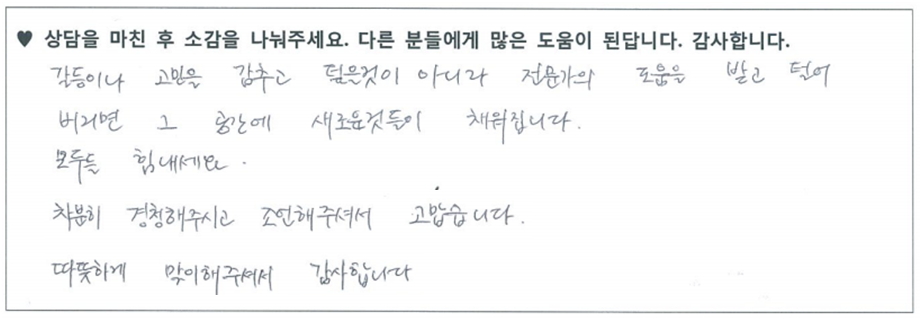 ♥ 상담을 마친 후 소감을 나눠주세요. 다른 분들에게 많은 도움이 된답니다. 감사합니다.
갈등이나 고민을 감추고 덮을것이 아니라 전문가의 도움을 받고 털어
버리면 그 공간에 새로운것들이 채워집니다.
모두들 힘내세요.
차분히 경청해주시고 조언해주셔서 고맙습니다.
따뜻하게 맞이해주셔서 감사합니다